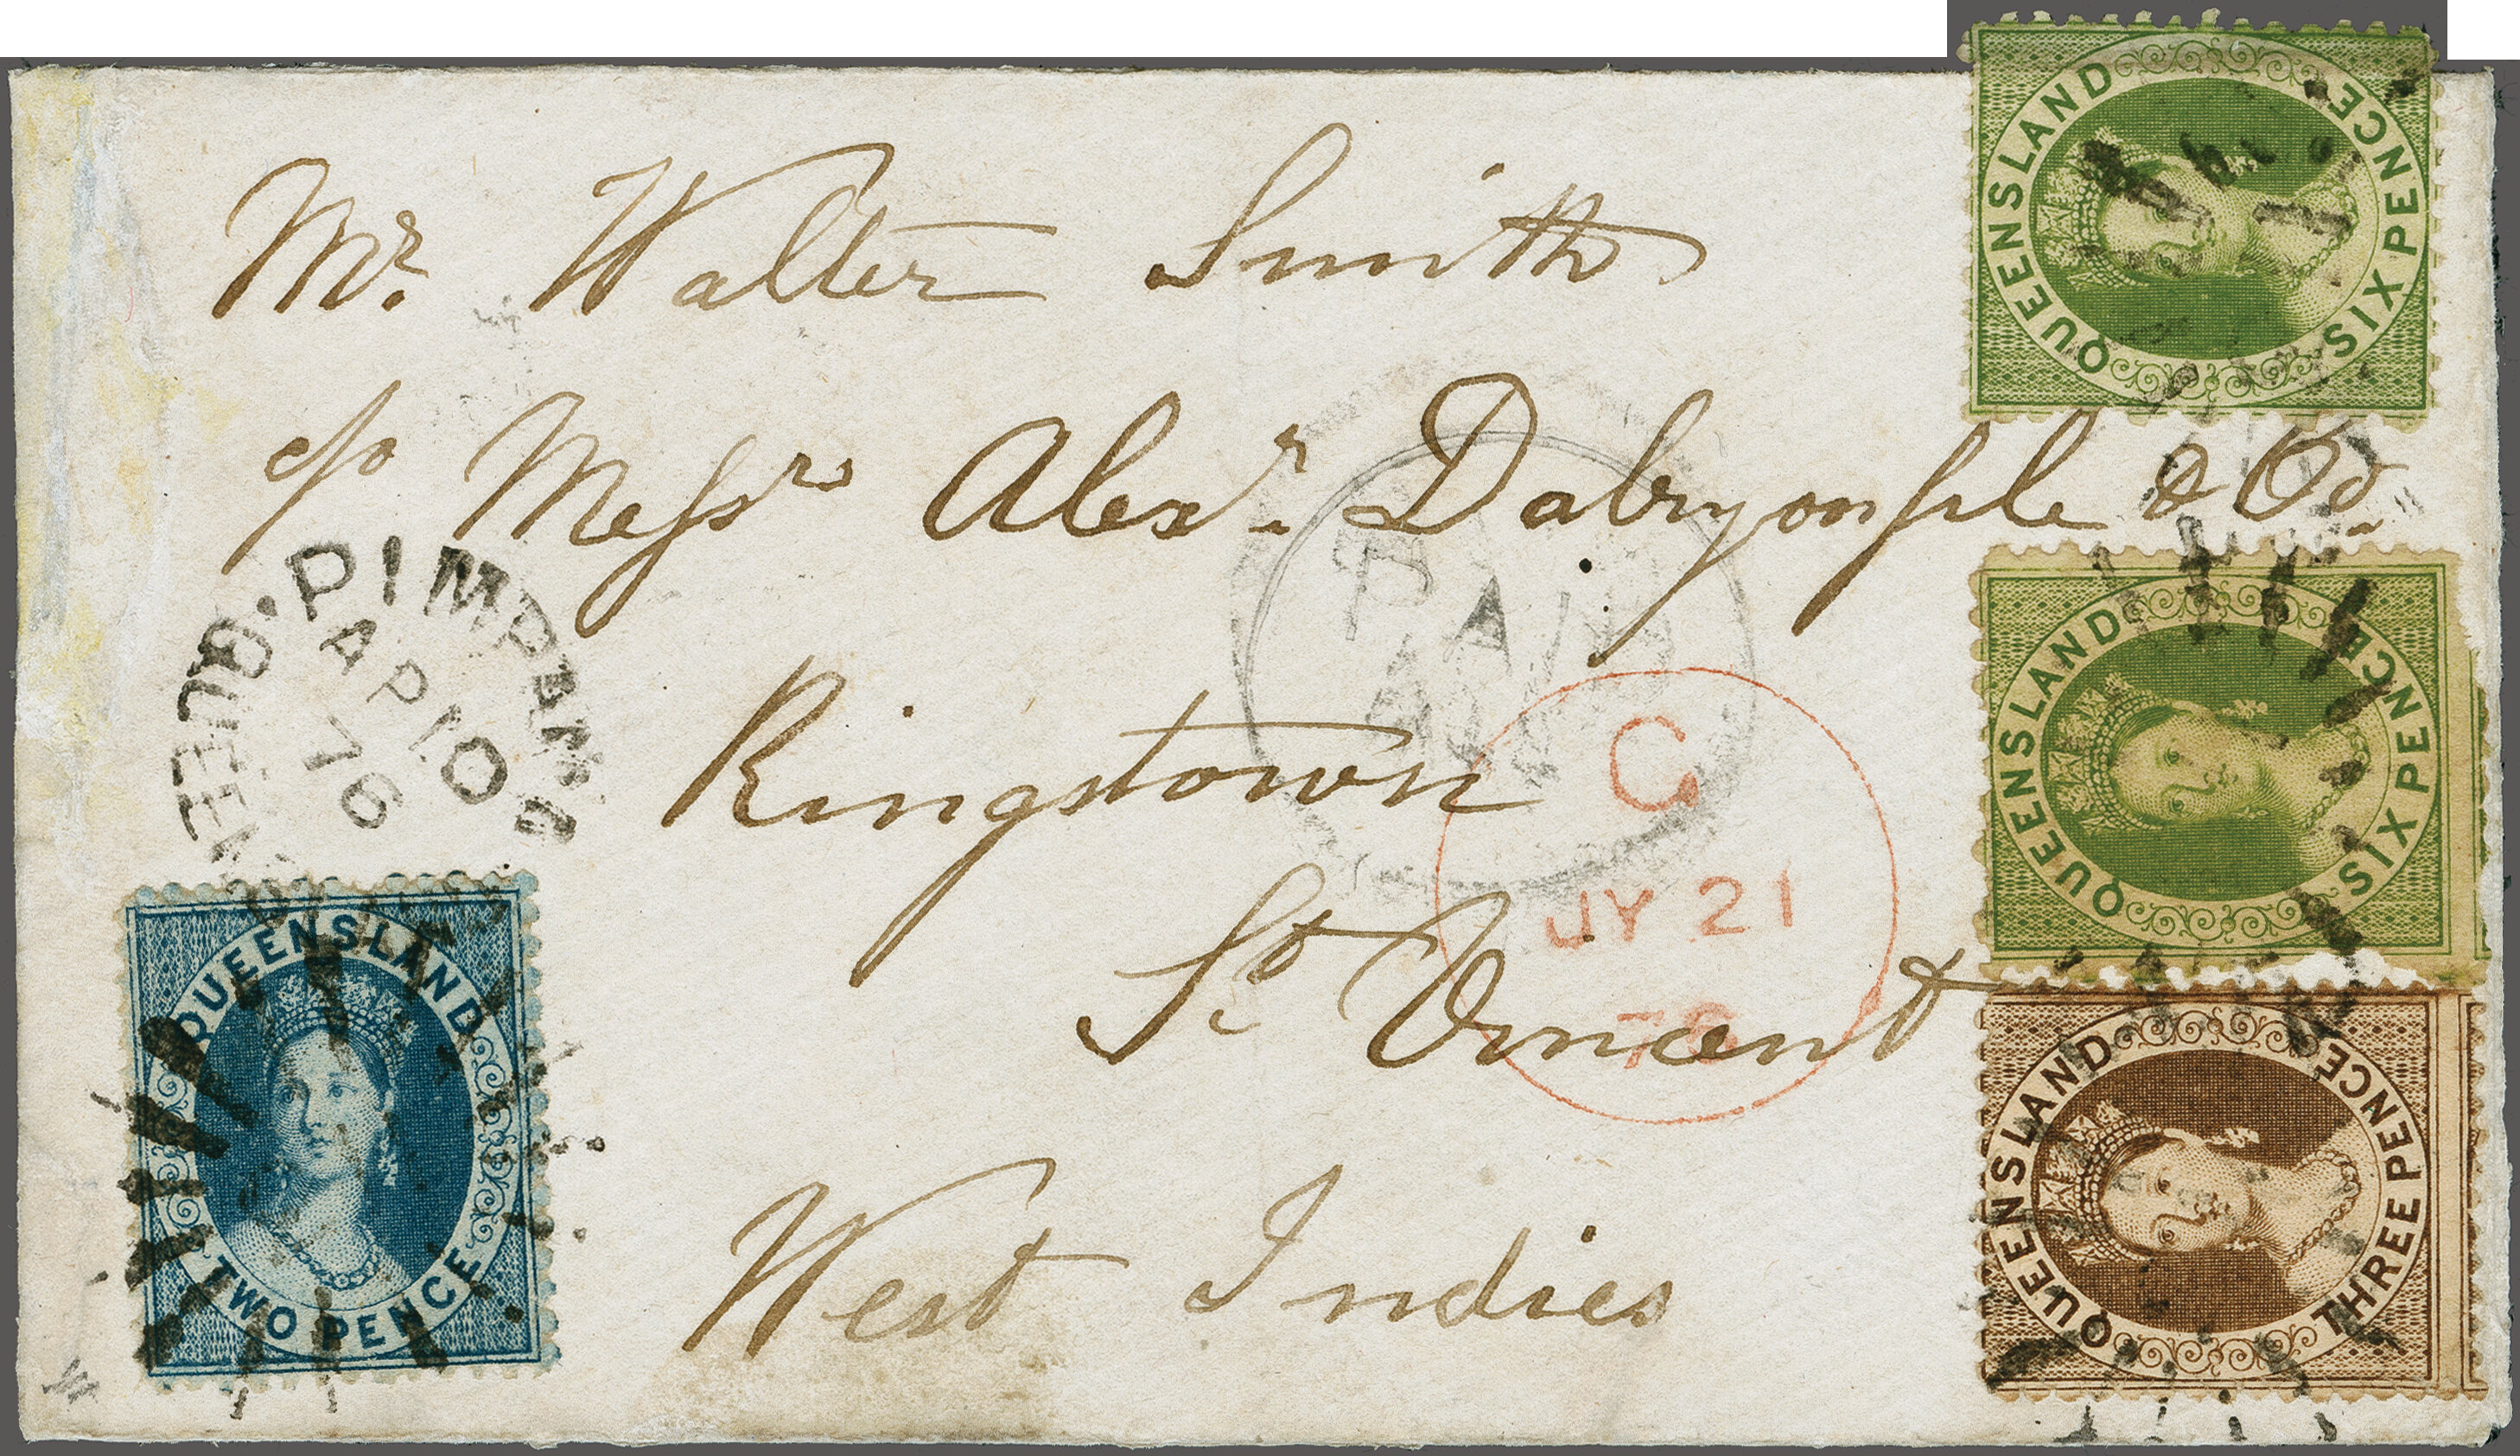 Mr. Walter Smith
c/o Messrs Alexr. Dalrymple & Co.
Kingstown
St Vincent
West Indies
QUEENSLAND SIX PENCE
QUEENSLAND SIX PENCE
QUEENSLAND THREE PENCE
PIMPAMA
AP 10
76
PAID
C
JY 21
76
QUEENSLAND
TWO PENCE